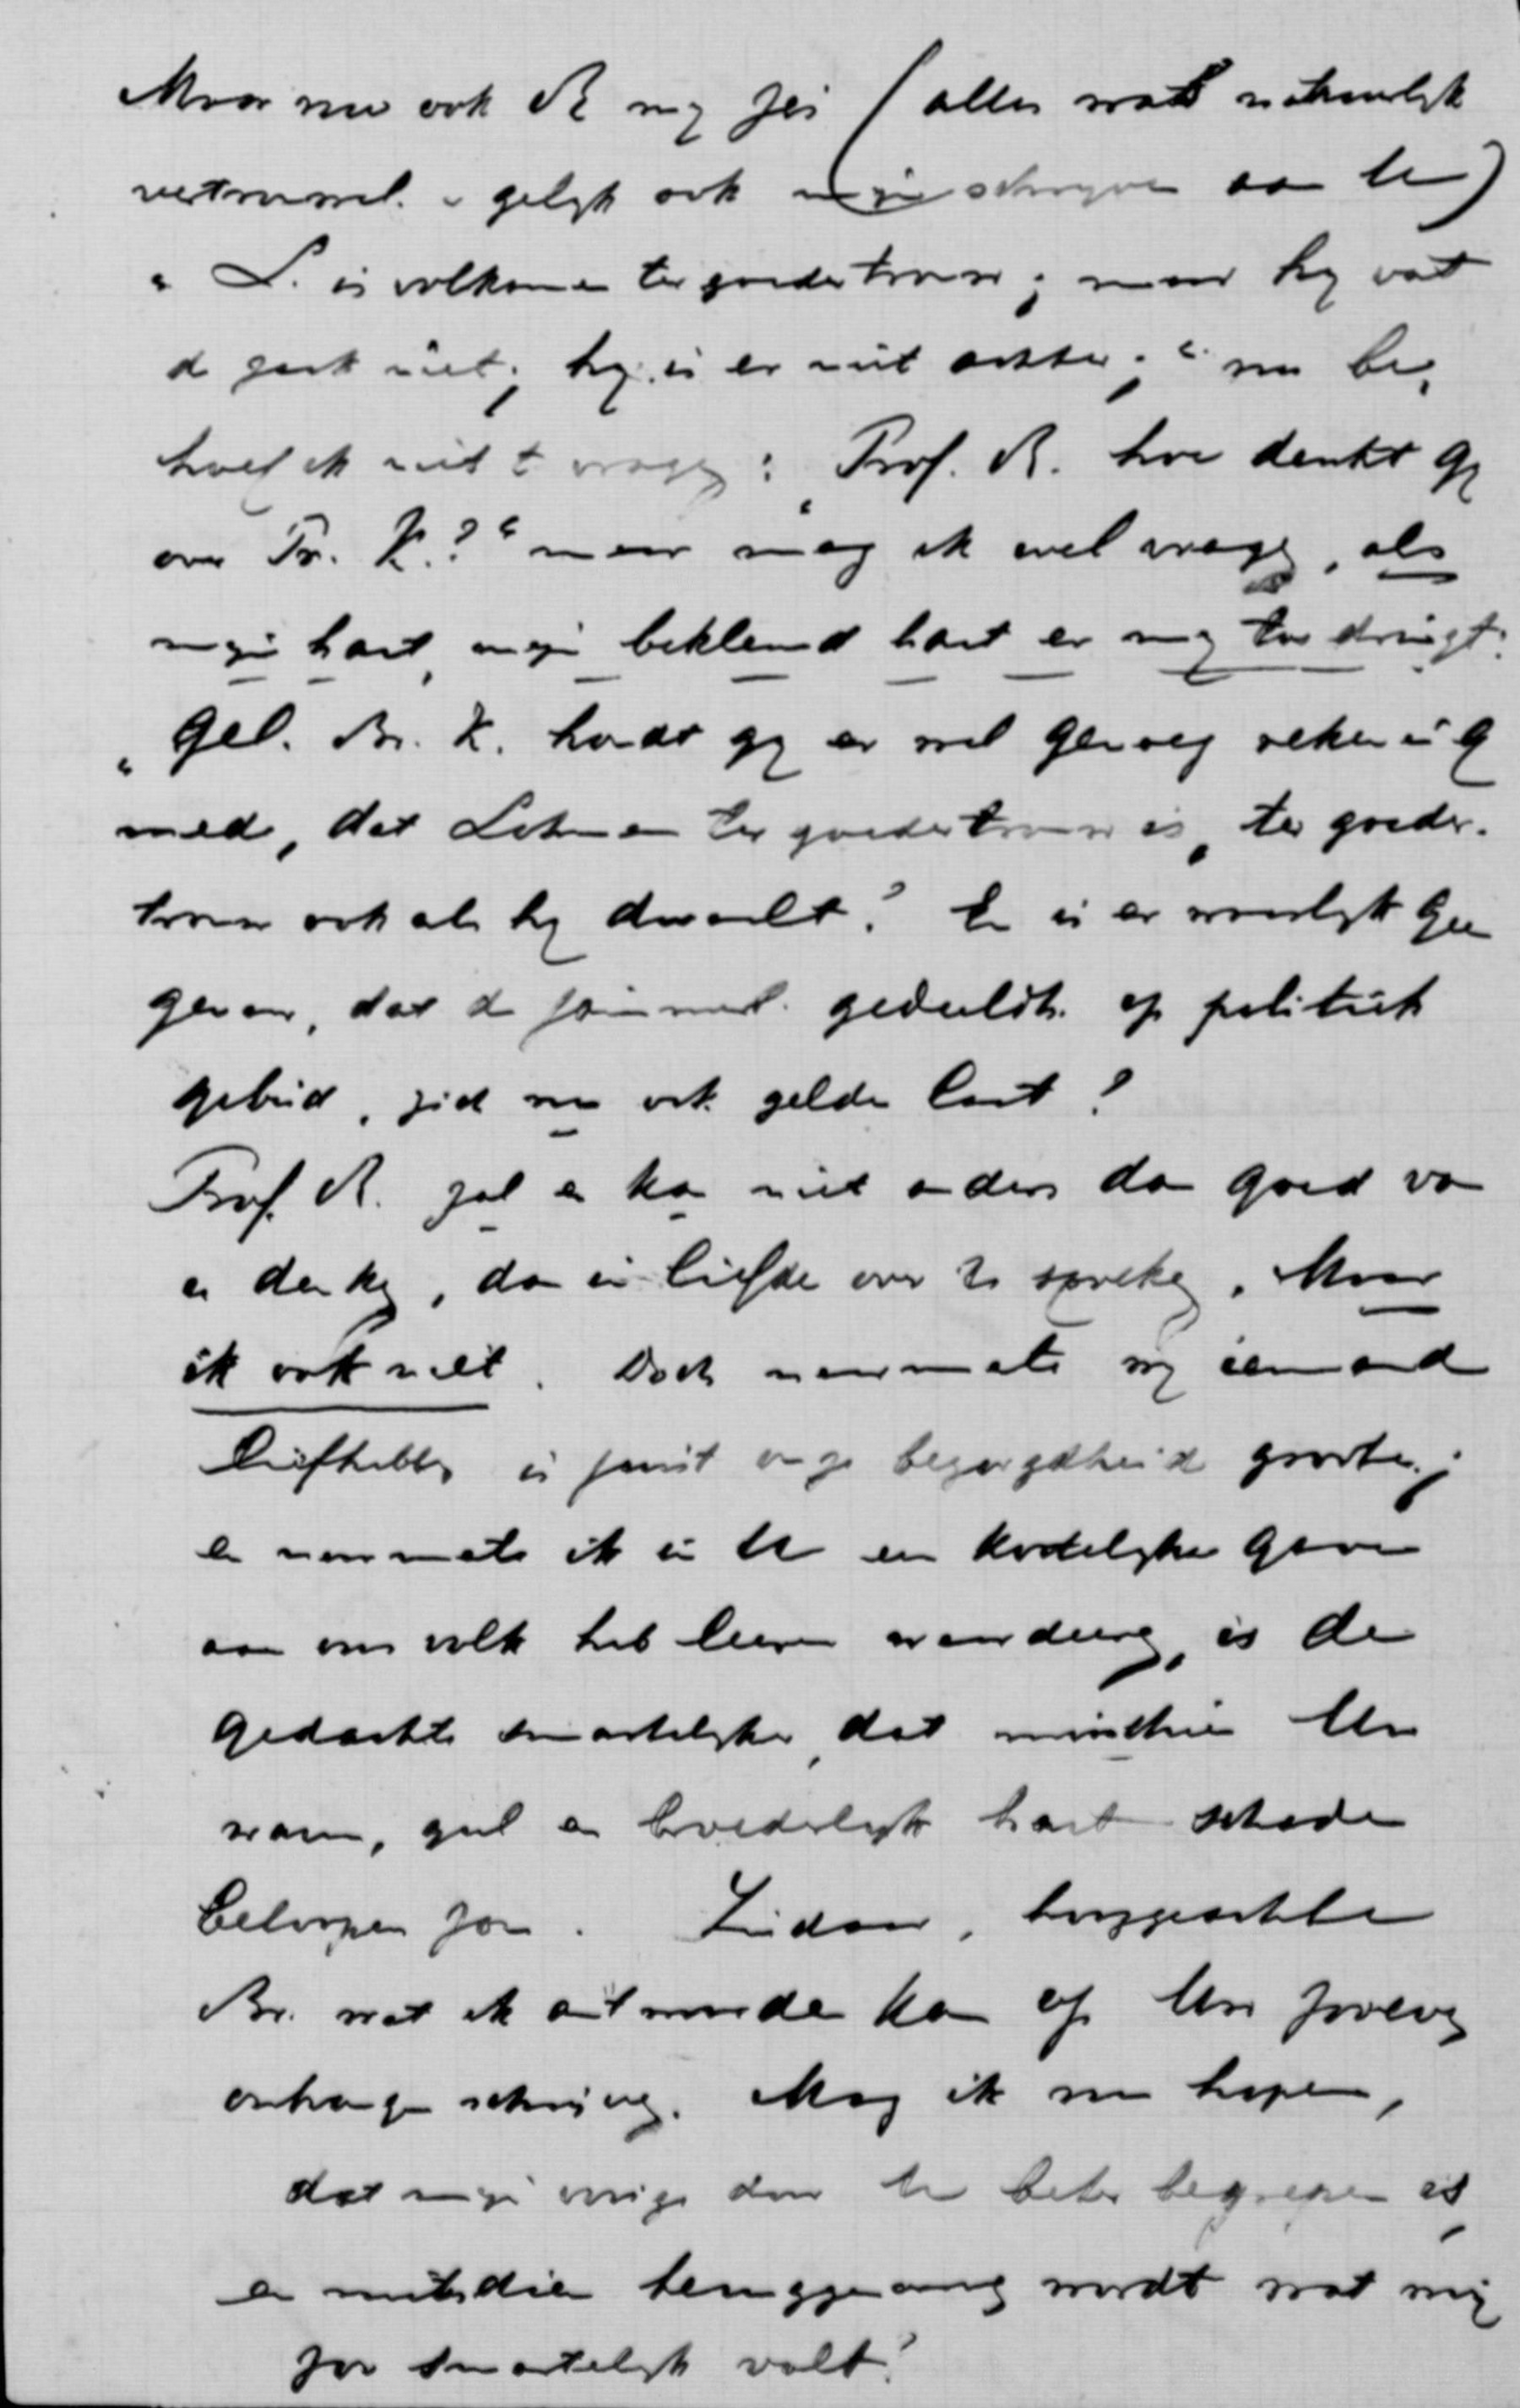 Maar nu ook R mij zei (alles wat natuurlijk
vertrouwel. gelijk ook mijn schrijven aan U)
„L. is volkomen ter goeder trouw; maar hij vat
de zaak niet; hij is er niet achter;“ nu be-
hoef ik niet te vragen: „Prof. R. hoe denkt gij
over Dr. K.?“ maar mag ik wel vragen, als
mijn hart, mijn beklemd hart er mij toe dringt:
„Gel. Br. K. houdt gij er wel genoeg rekening
mede, dat Lohman ter goeder trouw is, ter goeder
trouw ook als hij dwaalt? En is er waarlijk geen
gevaar, dat de geduldh. op politiek
gebied, zich nu ook gelden laat?
Prof. R. zal en kan niet anders dan goed van
U denken, dan in liefde over U spreken. Maar
ik ook niet. Doch naarmate wij iemand
liefhebben is juist onze bezorgdheid grooter;
en naarmate ik in U een kostelijke gave
aan ons volk heb leeren waardeeren, is de
gedachte smartelijker, dat misschien Uw
warm, gul en broederlijk hart schade
beloopen zou. Ziedaar, hooggeachte
Br. wat ik antwoorden kan op Uw zooeven
ontvangen schrijven. Mag ik nu hopen,
dat mijn vorige door U beter begrepen is
en mitsdien teruggenomen wordt wat mij
zoo smartelijk valt?